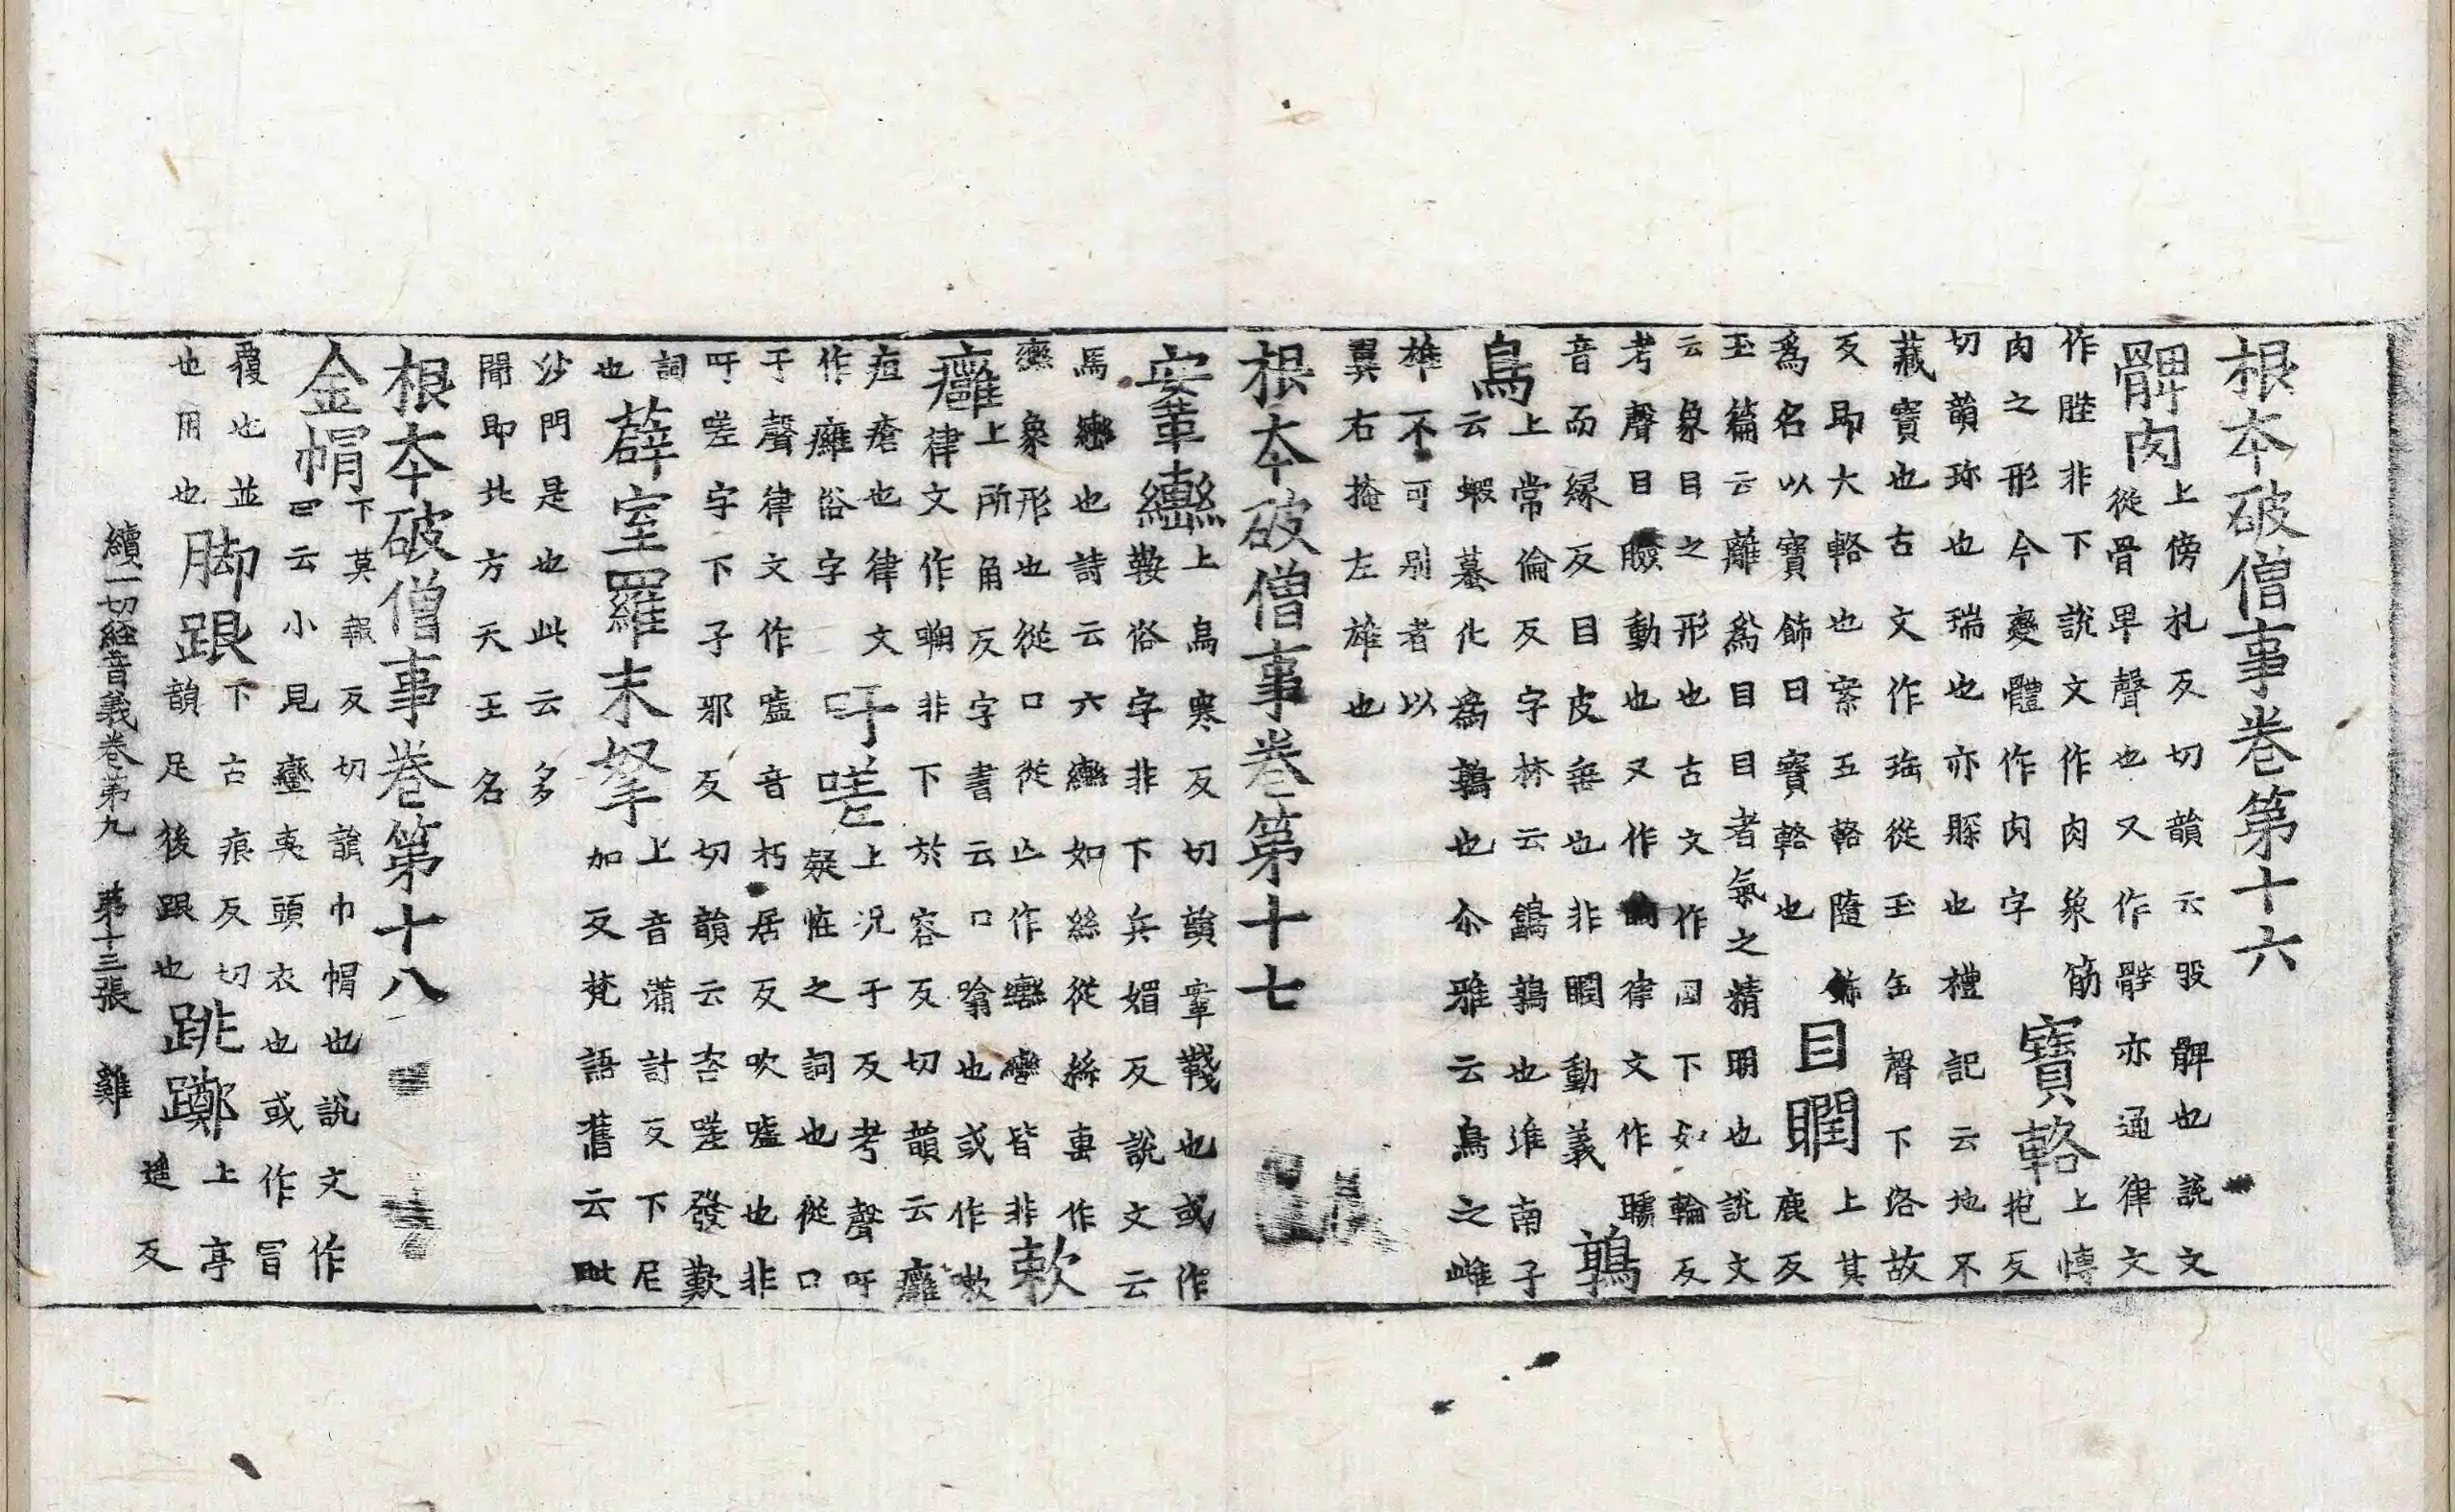 根本破僧事卷第十六
髀肉上傍礼反切韻云股髀也說文
從骨卑聲也又作䯗亦通律文
作䏶非下說文作肉象筋
肉之形今變體作肉字寶輅上博
抱反
切韻珎也瑞也亦賝也禮記云地不
藏寶也古文作珤從玉缶聲下洛故
反即大輅也案五輅隨飾
為名以寶飾曰寶輅也目瞤上其
鹿反
玉篇云離為目目者氣之精明也說文
云象目之形也古文作下如輪反
考聲目瞼動也又作律文作瞤
音而緣反目皮垂也非瞤動義鶉
鳥上常倫反字林云鷂鶉也淮南子
云蝦蟇化為鶉也尒雅云鳥之雌
雄不可別者以
翼右掩左雄也
根本破僧事卷第十七
鞌轡上烏寒反切韻鞌韉也或作
鞍俗字非下兵媚反說文云
馬轡也詩云六轡如絲從絲軎作
轡象形也從口從亾作轡皆非欶
癰上所角反字書云口噏也或作嗽
律文作嗍非下於容反切韻云癰
疽瘡也律文
作癕俗字吁嗟上况于反考聲吁
疑恠之詞也從口
于聲律文作嘘音朽居反吹嘘也非
吁嗟字下子邪反切韻云咨嗟發歎
詞
也薜室羅末拏上音蒲計反下尼
加反梵語舊云毗
沙門是也此云多
聞即北方天王名
根本破僧事卷第十八
金帽下莫報反切韻巾帽也說文作
曰云小兒蠻夷頭衣也或作冒
覆也並
也用也脚跟下古痕反切
韻足後跟也跳躑上亭
遥反
續一切經音義卷第九 第十三張 雞